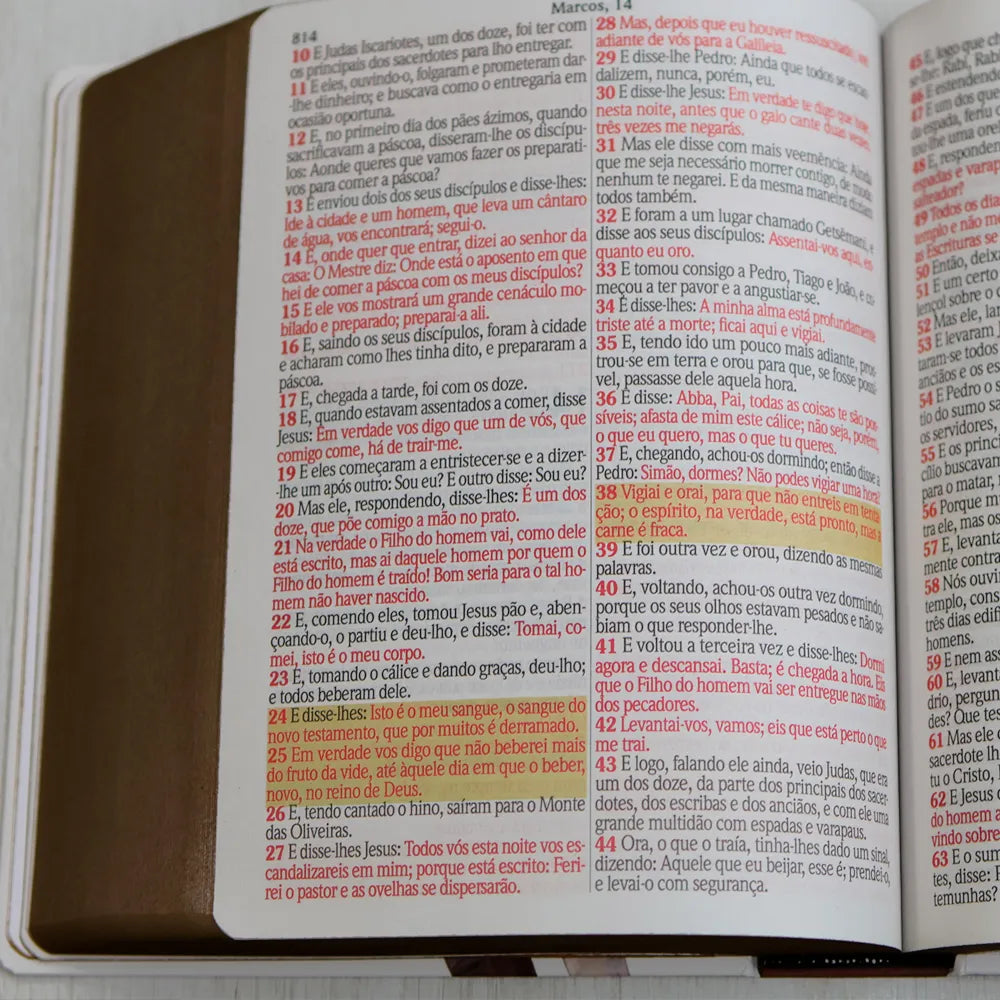 814
Marcos, 14
10 E Judas Iscariotes, um dos doze, foi ter com
os principais dos sacerdotes para lho entregar.
11 E eles, ouvindo-o, folgaram e prometeram dar-
-lhe dinheiro; e buscava como o entregaria em
ocasião oportuna.
12 E, no primeiro dia dos pães ázimos, quando
sacrificavam a páscoa, disseram-lhe os discípu-
los: Aonde queres que vamos fazer os preparati-
vos para comer a páscoa?
13 E enviou dois dos seus discípulos e disse-lhes:
Ide à cidade e um homem, que leva um cântaro
de água, vos encontrará; segui-o.
14 E, onde quer que entrar, dizei ao senhor da
casa: O Mestre diz: Onde está o aposento em que
hei de comer a páscoa com os meus discípulos?
15 E ele vos mostrará um grande cenáculo mo-
bilado e preparado; preparai-a ali.
16 E, saindo os seus discípulos, foram à cidade
e acharam como lhes tinha dito, e prepararam a
páscoa.
17 E, chegada a tarde, foi com os doze.
18 E, quando estavam assentados a comer, disse
Jesus: Em verdade vos digo que um de vós, que
comigo come, há de trair-me.
19 E eles começaram a entristecer-se e a dizer-
-lhe um após outro: Sou eu? E outro disse: Sou eu?
20 Mas ele, respondendo, disse-lhes: É um dos
doze, que põe comigo a mão no prato.
21 Na verdade o Filho do homem vai, como dele
está escrito, mas ai daquele homem por quem o
Filho do homem é traído! Bom seria para o tal ho-
mem não haver nascido.
22 E, comendo eles, tomou Jesus pão e, aben-
çoando-o, o partiu e deu-lho, e disse: Tomai, co-
mei, isto é o meu corpo.
23 E, tomando o cálice e dando graças, deu-lho;
e todos beberam dele.
24 E disse-lhes: Isto é o meu sangue, o sangue do
novo testamento, que por muitos é derramado.
25 Em verdade vos digo que não beberei mais
do fruto da vide, até àquele dia em que o beber,
novo, no reino de Deus.
26 E, tendo cantado o hino, saíram para o Monte
das Oliveiras.
27 E disse-lhes Jesus: Todos vós esta noite vos es-
candalizareis em mim; porque está escrito: Feri-
rei o pastor e as ovelhas se dispersarão.
28 Mas, depois que eu houver ressuscitado, irei
adiante de vós para a Galileia.
29 E disse-lhe Pedro: Ainda que todos se escan
dalizem, nunca, porém, eu.
30 E disse-lhe Jesus: Em verdade te digo que hoje,
nesta noite, antes que o galo cante duas vezes,
três vezes me negarás.
31 Mas ele disse com mais veemência: Ainda
que me seja necessário morrer contigo, de modo
nenhum te negarei. E da mesma maneira diziam
todos também.
32 E foram a um lugar chamado Getsêmani, e
disse aos seus discípulos: Assentai-vos aqui, en
quanto eu oro.
33 E tomou consigo a Pedro, Tiago e João, e co
meçou a ter pavor e a angustiar-se.
34 E disse-lhes: A minha alma está profundamente
triste até a morte; ficai aqui e vigiai.
35 E, tendo ido um pouco mais adiante, pros
trou-se em terra e orou para que, se fosse possí
vel, passasse dele aquela hora.
36 E disse: Abba, Pai, todas as coisas te são pos
síveis; afasta de mim este cálice; não seja, porém,
o que eu quero, mas o que tu queres.
37 E, chegando, achou-os dormindo; então disse a
Pedro: Simão, dormes? Não podes vigiar uma hora?
38 Vigiai e orai, para que não entreis em tenta
ção; o espírito, na verdade, está pronto, mas a
carne é fraca.
39 E foi outra vez e orou, dizendo as mesmas
palavras.
40 E, voltando, achou-os outra vez dormindo,
porque os seus olhos estavam pesados e não sa
biam o que responder-lhe.
41 E voltou a terceira vez e disse-lhes: Dormi
agora e descansai. Basta; é chegada a hora. Eis
que o Filho do homem vai ser entregue nas mãos
dos pecadores.
42 Levantai-vos, vamos; eis que está perto o que
me trai.
43 E logo, falando ele ainda, veio Judas, que era
um dos doze, da parte dos principais dos sacer
dotes, dos escribas e dos anciãos, e com ele uma
grande multidão com espadas e varapaus.
44 Ora, o que o traía, tinha-lhes dado um sinal,
dizendo: Aquele que eu beijar, esse é; prendei-o,
e levai-o com segurança.
45 E, logo que ch
se-lhe: Rabi, Rab
46 E estendendo
47 E um dos que
da espada, feriu o
tou-lhe uma ore
48 E, responden
espadas e varap
salteador?
49 Todos os dia
templo e não m
as Escrituras se
50 Então, deixa
51 E um certo
lençol sobre o
52 Mas ele, lar
53 E levaram
taram-se todos
anciãos e os es
54 E Pedro o s
tio do sumo sa
os servidores,
55 E os princ
cílio buscavam
para o matar,
56 Porque m
tra ele, mas os
57 E, levanta
mente contra
58 Nós ouvi
templo, cons
três dias edif
homens.
59 E nem ass
60 E, levanta
drio, pergun
des? Que tes
61 Mas ele
sacerdote lh
tu o Cristo,
62 E Jesus d
do homem a
vindo sobre
63 E o sum
tes, disse:
temunhas?